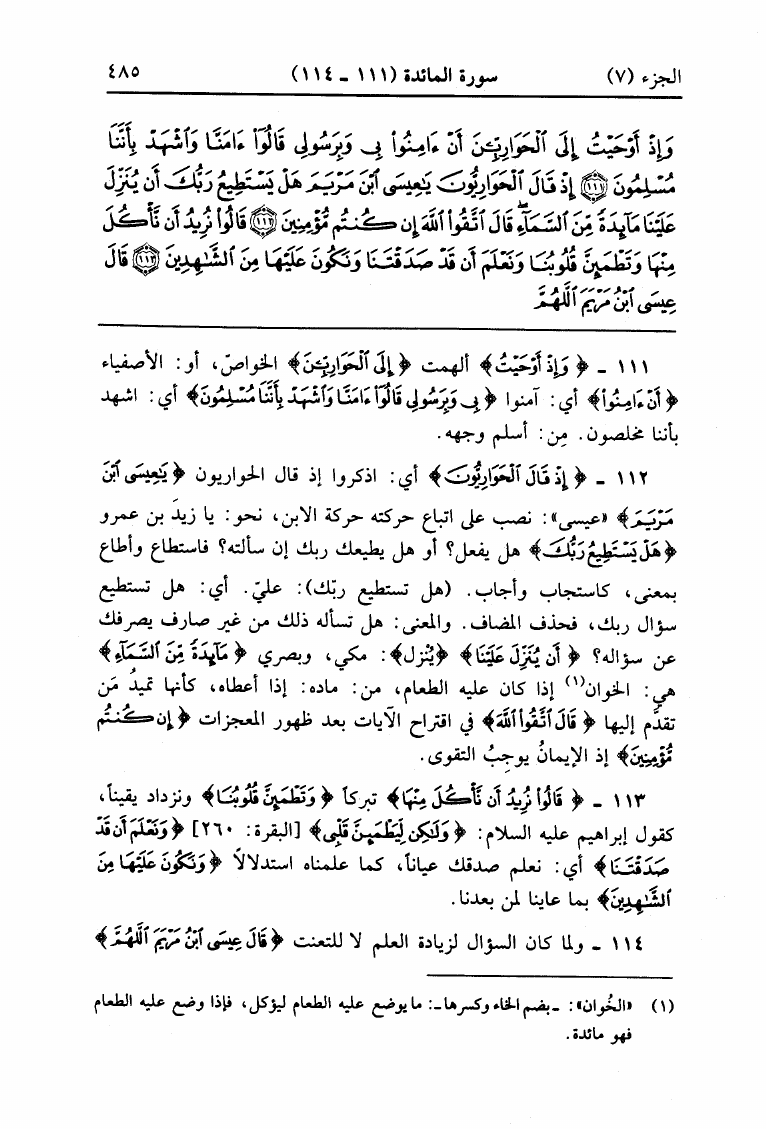 الجزء (٧) سورة المائدة (١١١ ـ ١١٤) ٤٨٥
وَإِذْ أَوْحَيْتُ إِلَى ٱلْحَوَارِيِّـۧنَ أَنْ ءَامِنُوا۟ بِى وَبِرَسُولِى قَالُوٓا۟ ءَامَنَّا وَٱشْهَدْ بِأَنَّنَا
مُسْلِمُونَ ﴿١١١﴾ إِذْ قَالَ ٱلْحَوَارِيُّونَ يَـٰعِيسَى ٱبْنَ مَرْيَمَ هَلْ يَسْتَطِيعُ رَبُّكَ أَن يُنَزِّلَ
عَلَيْنَا مَآئِدَةً مِّنَ ٱلسَّمَآءِ ۖ قَالَ ٱتَّقُوا۟ ٱللَّهَ إِن كُنتُم مُّؤْمِنِينَ ﴿١١٢﴾ قَالُوا۟ نُرِيدُ أَن نَّأْكُلَ
مِنْهَا وَتَطْمَئِنَّ قُلُوبُنَا وَنَعْلَمَ أَن قَدْ صَدَقْتَنَا وَنَكُونَ عَلَيْهَا مِنَ ٱلشَّـٰهِدِينَ ﴿١١٣﴾ قَالَ
عِيسَى ٱبْنُ مَرْيَمَ ٱللَّهُمَّ
١١١ ـ ﴿وَإِذْ أَوْحَيْتُ﴾ ألهمت ﴿إِلَى ٱلْحَوَارِيِّـۧنَ﴾ الخواصّ، أو: الأصفياء
﴿أَنْ ءَامِنُوا۟﴾ أي: آمنوا ﴿بِى وَبِرَسُولِى قَالُوٓا۟ ءَامَنَّا وَٱشْهَدْ بِأَنَّنَا مُسْلِمُونَ﴾ أي: اشهد
بأننا مخلصون. مِن: أسلم وجهه.
١١٢ ـ ﴿إِذْ قَالَ ٱلْحَوَارِيُّونَ﴾ أي: اذكروا إذ قال الحواريون ﴿يَـٰعِيسَى ٱبْنَ
مَرْيَمَ﴾ «عيسى»: نصب على اتباع حركته حركة الابن، نحو: يا زيدَ بن عمرو
﴿هَلْ يَسْتَطِيعُ رَبُّكَ﴾ هل يفعل؟ أو هل يطيعك ربك إن سألته؟ فاستطاع وأطاع
بمعنى، كاستجاب وأجاب. (هل تستطيع ربّك): عليّ. أي: هل تستطيع
سؤال ربك، فحذف المضاف. والمعنى: هل تسأله ذلك من غير صارف يصرفك
عن سؤاله؟ ﴿أَن يُنَزِّلَ عَلَيْنَا﴾ ﴿يُنْزِل﴾: مكي، وبصري ﴿مَآئِدَةً مِّنَ ٱلسَّمَآءِ﴾
هي: الخوان(١) إذا كان عليه الطعام، من: ماده: إذا أعطاه، كأنها تميدُ مَن
تقدَّم إليها ﴿قَالَ ٱتَّقُوا۟ ٱللَّهَ﴾ في اقتراح الآيات بعد ظهور المعجزات ﴿إِن كُنتُم
مُّؤْمِنِينَ﴾ إذ الإيمانُ يوجبُ التقوى.
١١٣ ـ ﴿قَالُوا۟ نُرِيدُ أَن نَّأْكُلَ مِنْهَا﴾ تبركاً ﴿وَتَطْمَئِنَّ قُلُوبُنَا﴾ ونزداد يقيناً،
كقول إبراهيم عليه السلام: ﴿وَلَـٰكِن لِّيَطْمَئِنَّ قَلْبِى﴾ [البقرة: ٢٦٠] ﴿وَنَعْلَمَ أَن قَدْ
صَدَقْتَنَا﴾ أي: نعلم صدقك عياناً، كما علمناه استدلالاً ﴿وَنَكُونَ عَلَيْهَا مِنَ
ٱلشَّـٰهِدِينَ﴾ بما عاينا لمن بعدنا.
١١٤ ـ ولما كان السؤال لزيادة العلم لا للتعنت ﴿قَالَ عِيسَى ٱبْنُ مَرْيَمَ ٱللَّهُمَّ﴾
(١) «الخُوان»: ـ بضم الخاء وكسرها ـ: ما يوضع عليه الطعام ليؤكل، فإذا وضع عليه الطعام
فهو مائدة.